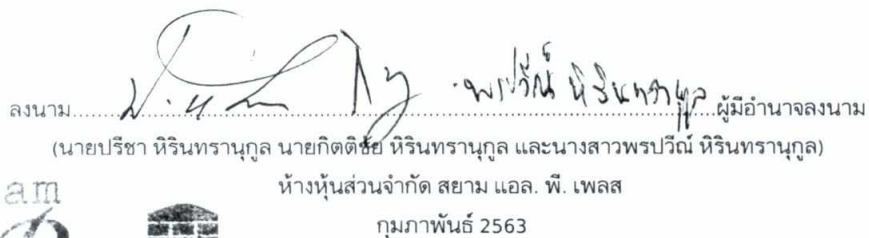 ลงนาม........................ พรปวีณ์ หิรินทรานุกูล ผู้มีอำนาจลงนาม
(นายปรีชา หิรินทรานุกูล นายกิตติชัย หิรินทรานุกูล และนางสาวพรปวีณ์ หิรินทรานุกูล)
ห้างหุ้นส่วนจำกัด สยาม แอล. พี. เพลส
am
กุมภาพันธ์ 2563